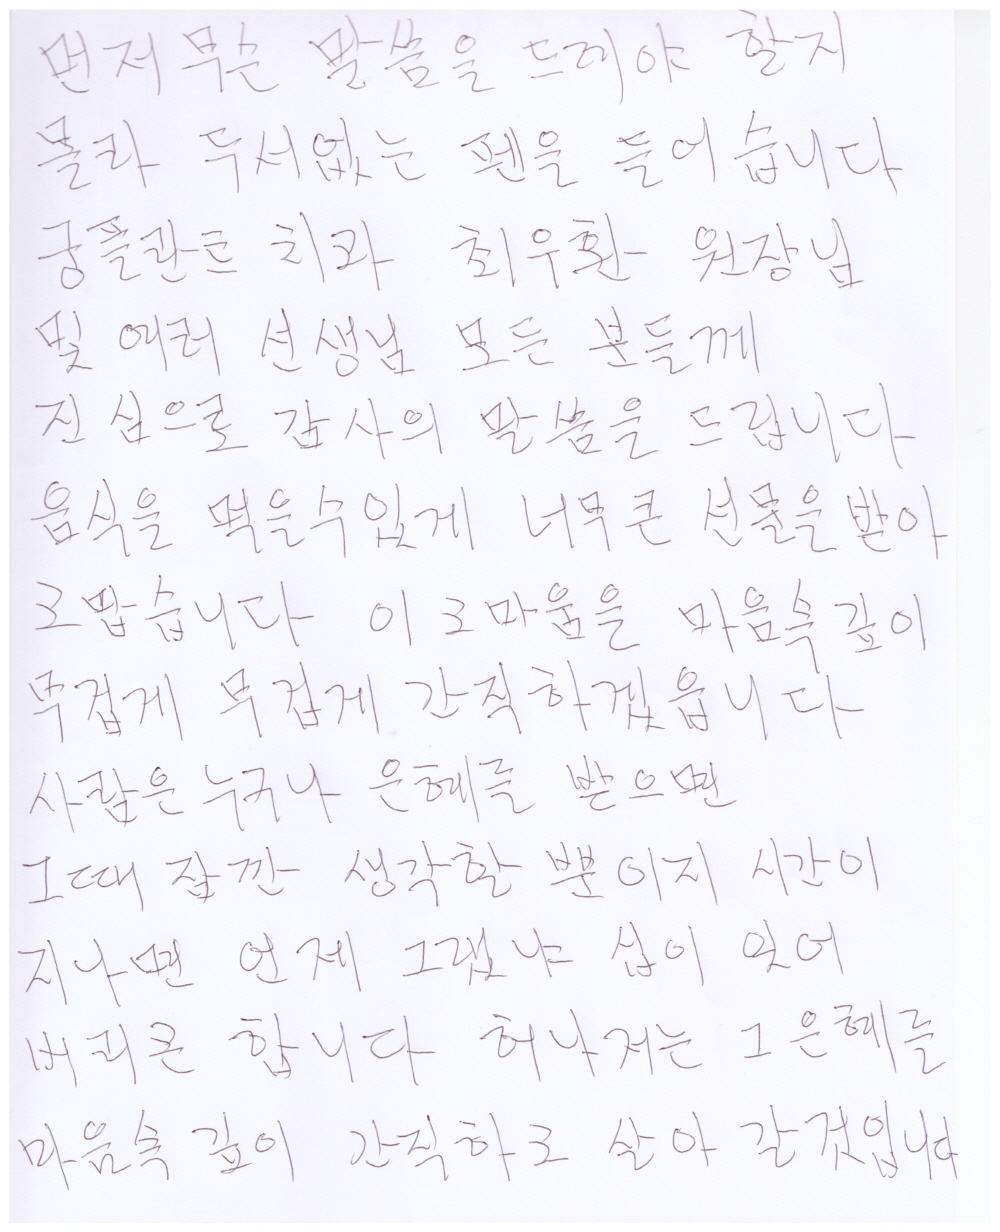 먼저 무슨 말씀을 드려야 할지
몰라 두서없는 펜을 들어습니다
궁플란트 치과 최우환 원장님
및 여러 선생님 모든 분들께
진심으로 감사의 말씀을 드립니다
음식을 먹을수있게 너무큰 선물을 받아
고맙습니다 이 고마움을 마음속깊이
무겁게 무겁게 간직하겠읍니다
사람은 누구나 은혜를 받으면
그때 잠깐 생각할 뿐이지 시간이
지나면 언제 그랬냐 십이 잊어
버리곤 합니다 허나저는 그 은혜를
마음속 깊이 간직하고 살아 갈것입니다